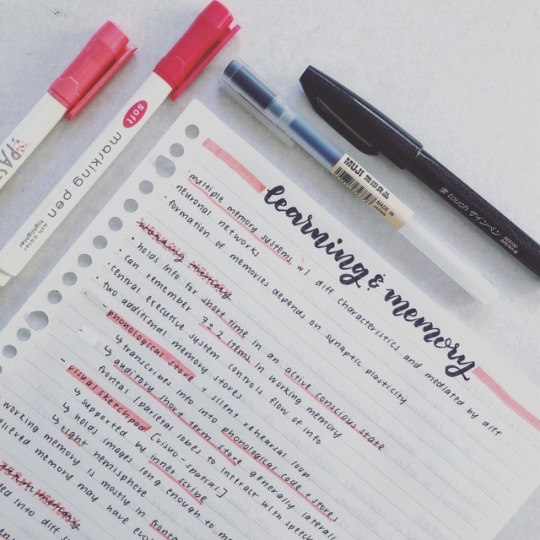 PAS
soft
marking pen
soft color
highlighter
MUJI 無印良品
MADE IN
JAPAN
touch サインペン
learning & memory
· multiple memory systems w/ diff characteristics and mediated by diff
neuronal networks
· formation of memories depends on synaptic plasticity
working memory
· holds info for short time in an active conscious state
· can remember 7±2 items in working memory
· central executive system controls flow of info
· two additional memory stores
- phonological store + silent rehearsal loop
↳ transcribes info into phonological code + stores
↳ auditory short term store generally laterali
frontal/parietal lobes to interact with speech
- visual sketchpad [visuo-spatial]
↳ supported by inner scribe
↳ holds images long enough to m
↳ right hemisphere
working memory is mostly in fronta
elieved memory may have evo
ed into diff s